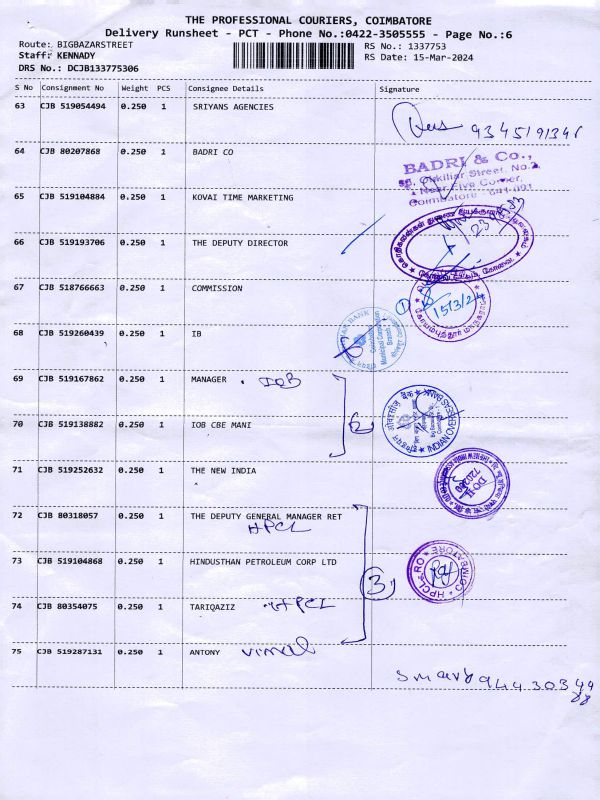 THE PROFESSIONAL COURIERS, COIMBATORE
Delivery Runsheet - PCT - Phone No.:0422-3505555 - Page No.:6
Route: BIGBAZARSTREET
RS No.: 1337753
Staff: KENNADY
RS Date: 15-Mar-2024
DRS No.: DCJB133775306
S No Consignment No Weight PCS Consignee Details Signature
63 CJB 519054494 0.250 1 SRIYANS AGENCIES
64 CJB 80207868 0.250 1 BADRI CO
BADRI & Co.,
Ukkiliar Street, No.2,
Near Five Corner,
Coimbatore - 641 001
65 CJB 519104884 0.250 1 KOVAI TIME MARKETING
66 CJB 519193706 0.250 1 THE DEPUTY DIRECTOR
67 CJB 518766663 0.250 1 COMMISSION
15/3/24
68 CJB 519260439 0.250 1 IB
69 CJB 519167862 0.250 1 MANAGER IOB
70 CJB 519138882 0.250 1 IOB CBE MANI
2
INDIAN OVERSEAS BANK
71 CJB 519252632 0.250 1 THE NEW INDIA
72 CJB 80318057 0.250 1 THE DEPUTY GENERAL MANAGER RET
HPCL
73 CJB 519104868 0.250 1 HINDUSTHAN PETROLEUM CORP LTD
3
HPCL RO COIMBATORE
74 CJB 80354075 0.250 1 TARIQAZIZ HPCL
75 CJB 519287131 0.250 1 ANTONY vimal